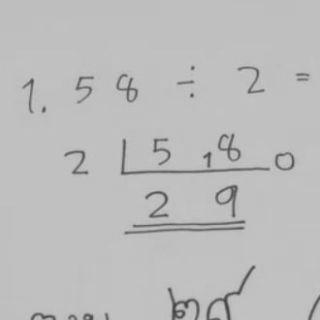 1. 58 ÷ 2 =
2 5 ,8 0
2 9
๒๙